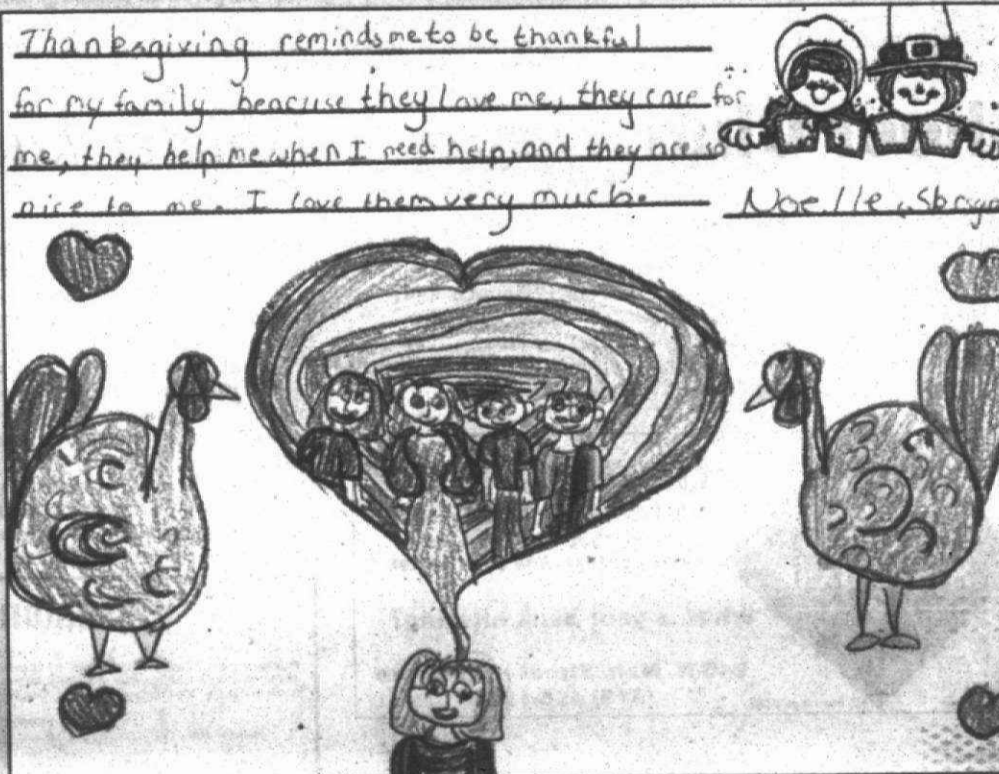 Thanksgiving reminds me to be thankful
for my family beacuse they love me, they care for
me, they help me when I need help, and they are so
nice to me. I love them very much.
Noelle